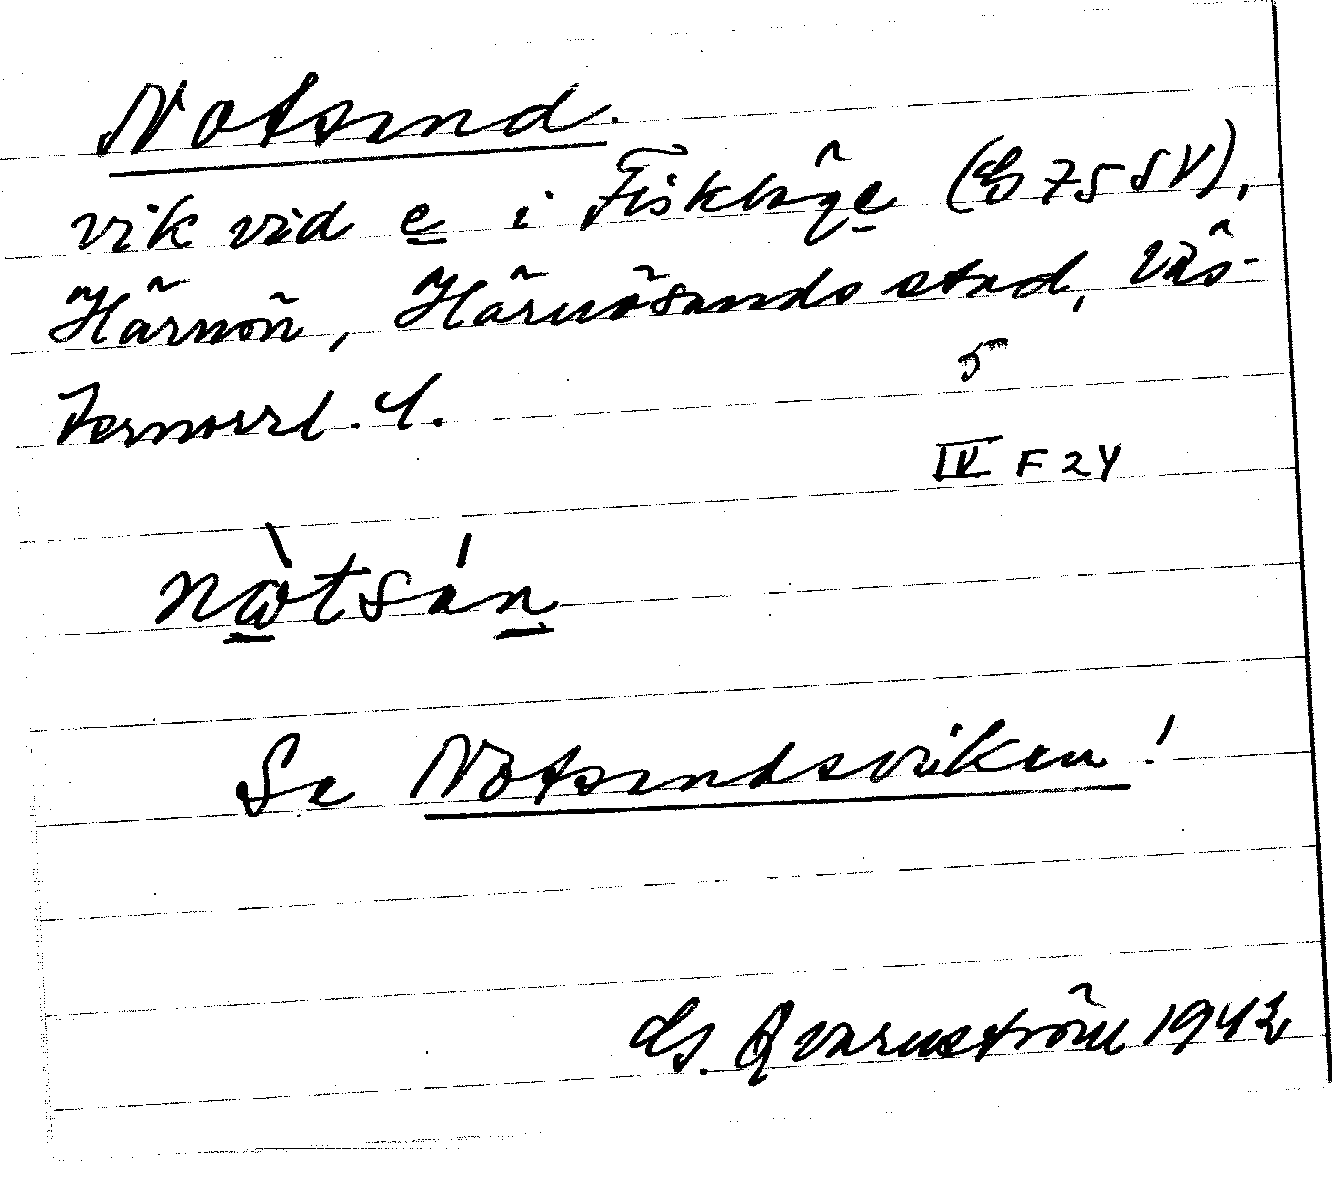 Notsund.
vik vid e i Fiskläge (E 75 SV),
Härnön, Härnösands stad, Väs-
ternorrl. l.
5
IV F 24
nòtsán
Se Notsundsviken!
G. Qvarnström 1942